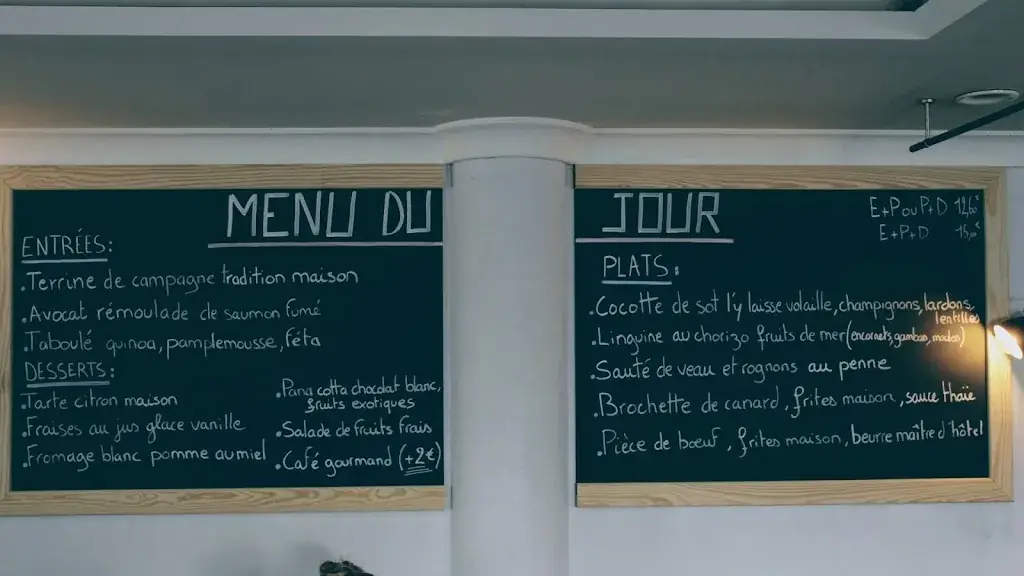 MENU DU JOUR
ENTRÉES:
.Terrine de campagne tradition maison
.Avocat rémoulade de saumon fumé
.Taboulé quinoa, pamplemousse, féta
DESSERTS:
.Tarte citron maison
.Fraises au jus glace vanille
.Fromage blanc pomme au miel
.Pana cotta chocolat blanc,
fruits exotiques
.Salade de fruits frais
.Café gourmand (+2€)
E+P ou P+D 12,60€
E+P+D 15,00€
PLATS:
.Cocotte de sot l'y laisse volaille, champignons, lardons,
lentilles
.Linguine au chorizo fruits de mer (encornets, gambas,
.Sauté de veau et rognons au penne
.Brochette de canard, frites maison, sauce thaïe
.Pièce de boeuf, frites maison, beurre maître d'hôtel